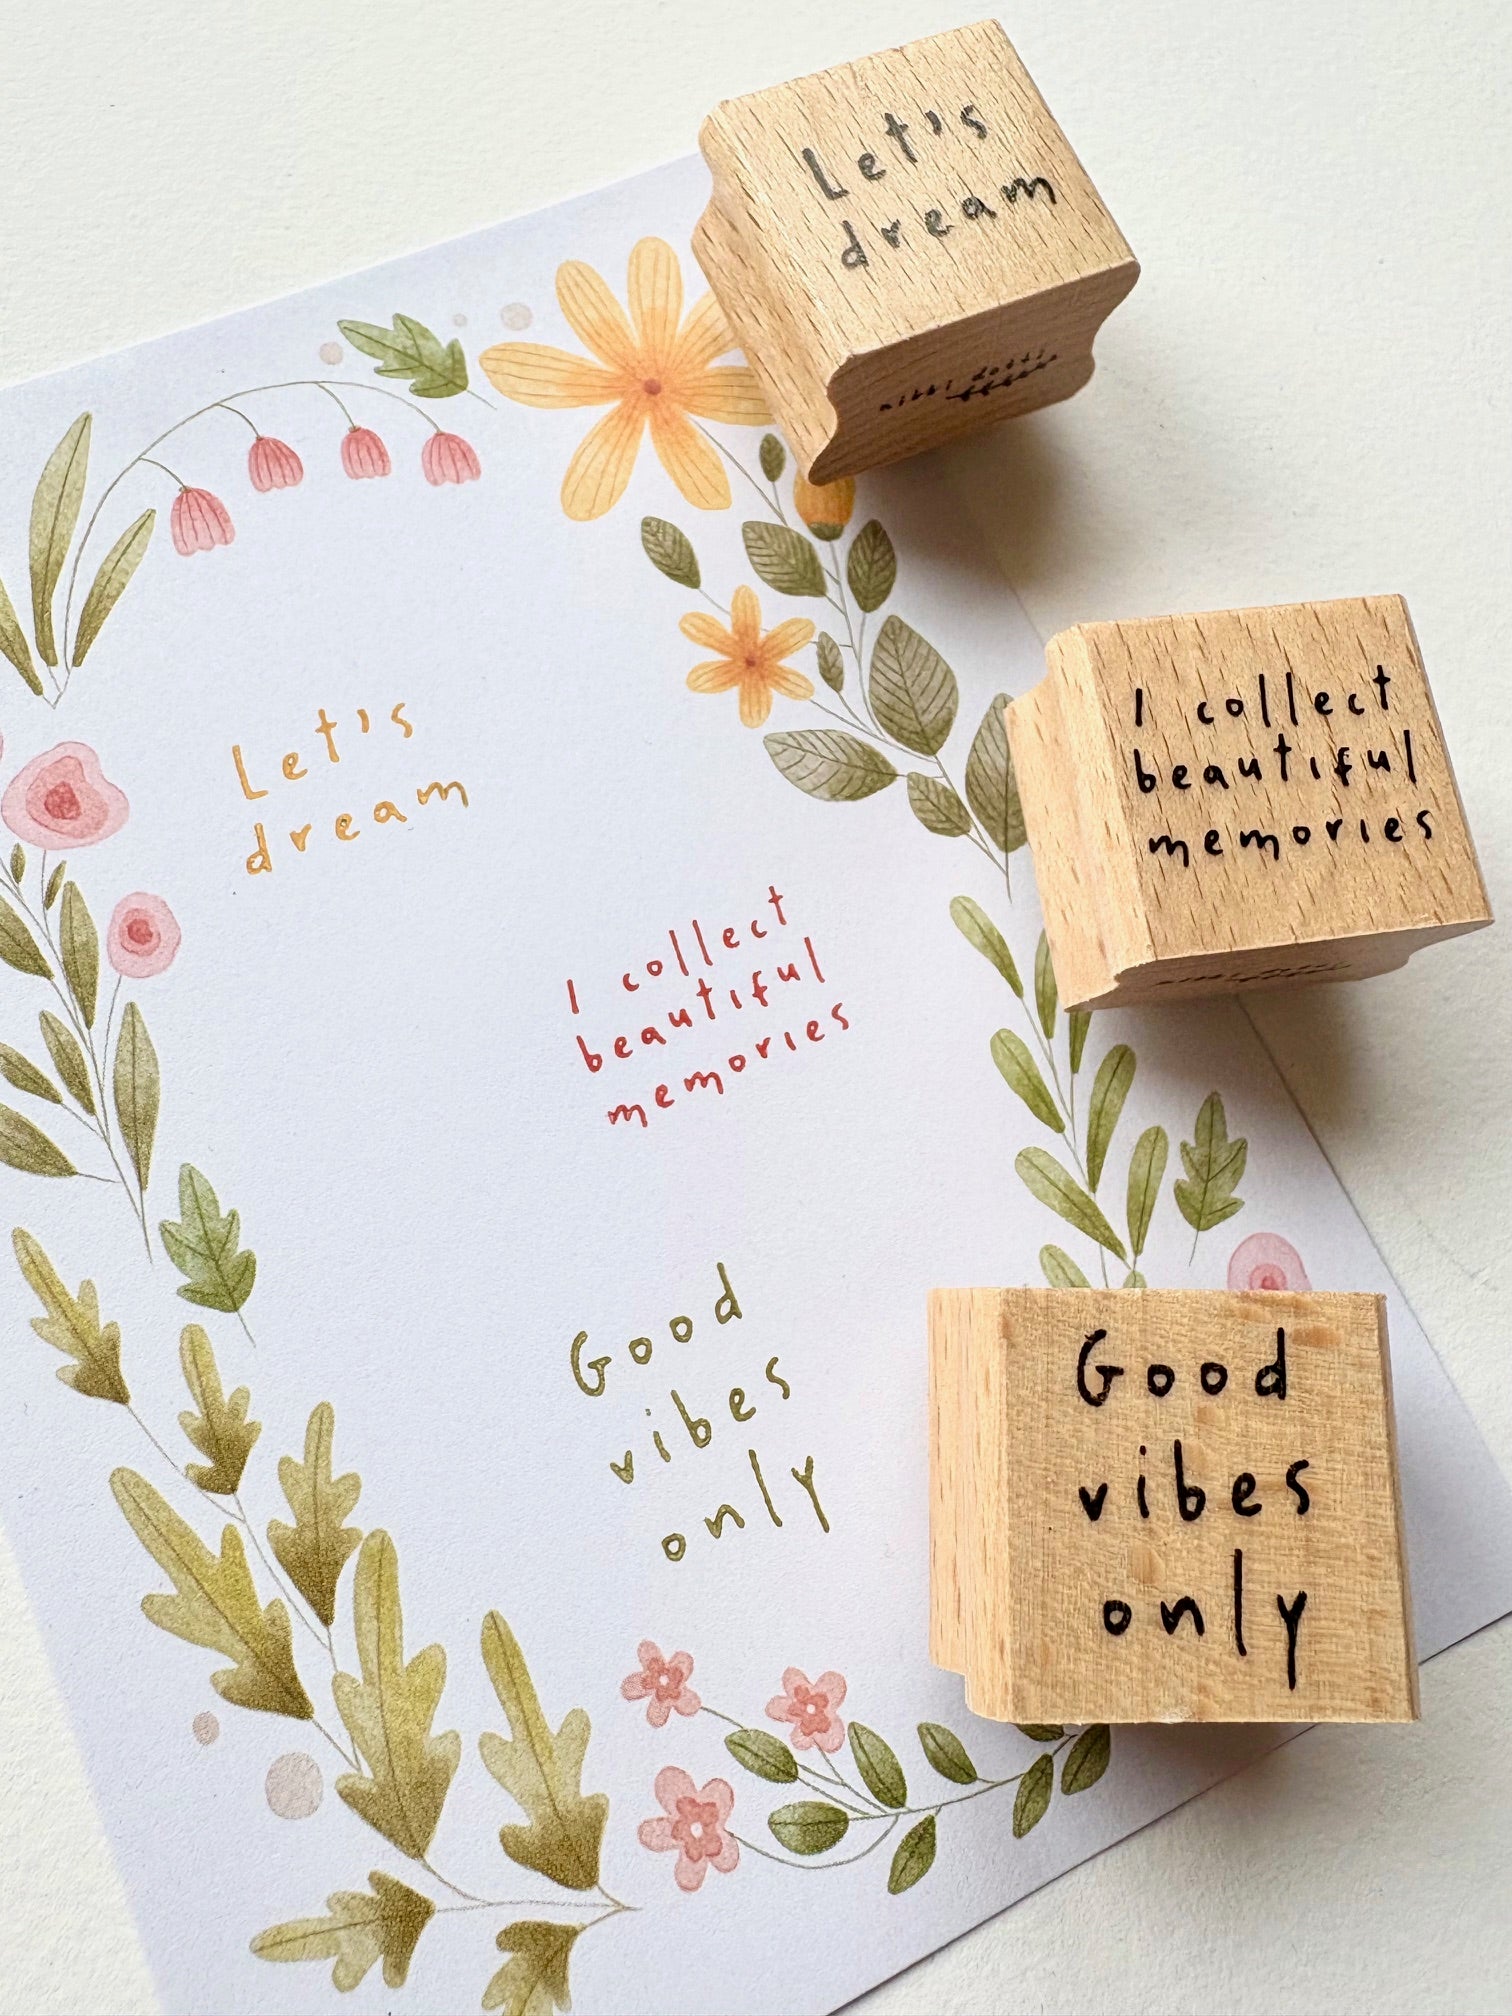 Let's
dream
nikki dotti
I collect
beautiful
memories
Good
vibes
only
Let's
dream
I collect
beautiful
memories
Good
vibes
only